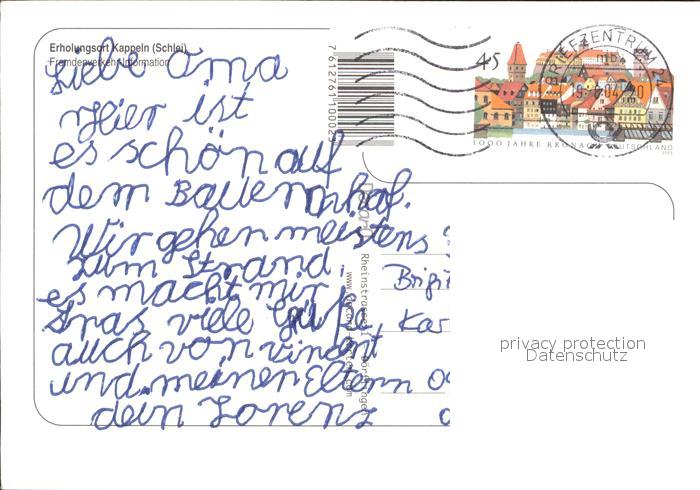 Erholungsort Kappeln (Schlei)
Fremdenverkehr Information
Liebe Oma
Hier ist
es schön auf
dem Bauernhof.
Wir gehen meistens
zum Strand.
es macht mir
Spas viele Grüße,
auch von vincent
und meinen Eltern
dein Lorenz
45
BRIEFZENTRUM 2
1000 JAHRE KRONACH DEUTSCHLAND
Brigit
Kar
privacy protection
Datenschutz